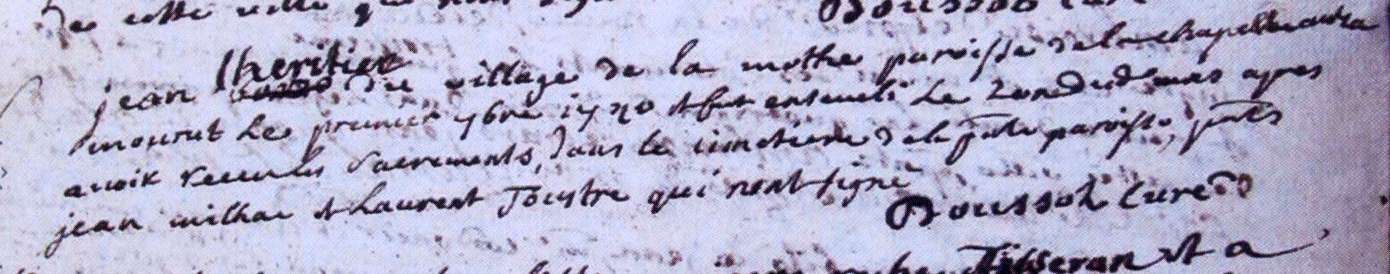 de cette ville que nous
Boussoh Curé
jean lheritier du village de la mothe paroisse de la chapelle
mourut le premier 7bre 1770 et fut enseveli le 2 dud mois apres
avoir receu les sacrements, dans le cimetiere de la pnte paroisse, pnts
jean milhac et laurent Joustre qui nont signé
Boussoh Curé
Tisseran et a